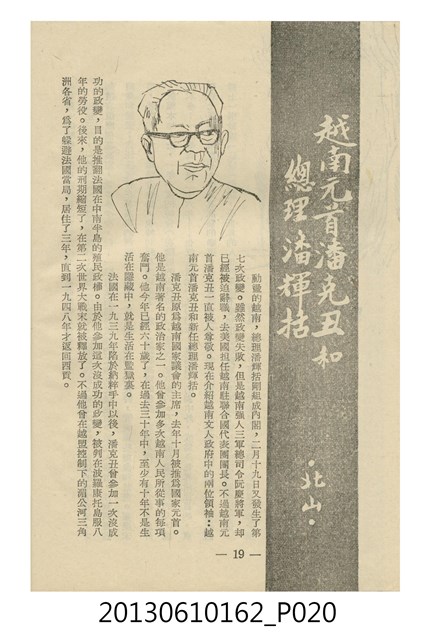 越南元首潘克丑和
總理潘輝括
·北山·
動盪的越南，總理潘輝括剛組成內閣，二月十九日又發生了第
七次政變。雖然政變失敗，但是越南強人三軍總司令阮慶將軍，却
已經被迫辭職，去美國担任越南駐聯合國代表團團長。不過越南元
首潘克丑一直被人尊敬。現在介紹越南文人政府中的兩位領袖：越
南元首潘克丑和新任總理潘輝括。
潘克丑原爲越南國家議會的主席，去年十月被推爲國家元首。
他是越南著名的政治家之一。他曾參加多次越南人民所從事的每項
奮鬥。他今年已經六十歲了，在過去三十年中，至少有十年不是生
活在隱藏中，就是生活在監獄裏。
法國在一九三九年陷於納粹手中以後，潘克丑曾參加一次沒成
功的政變，目的是推翻法國在中南半島的殖民政權。由於他參加這次沒成功的政變，被判在波羅康托島服八
年的勞役。後來，他的刑期縮短了，在第二次世界大戰末就被釋放了。不過他曾在越盟控制下的湄公河三角
洲各省，爲了躱避法國當局，居住了三年，直到一九四八年才返回西貢。
— 19 —
20130610162_P020